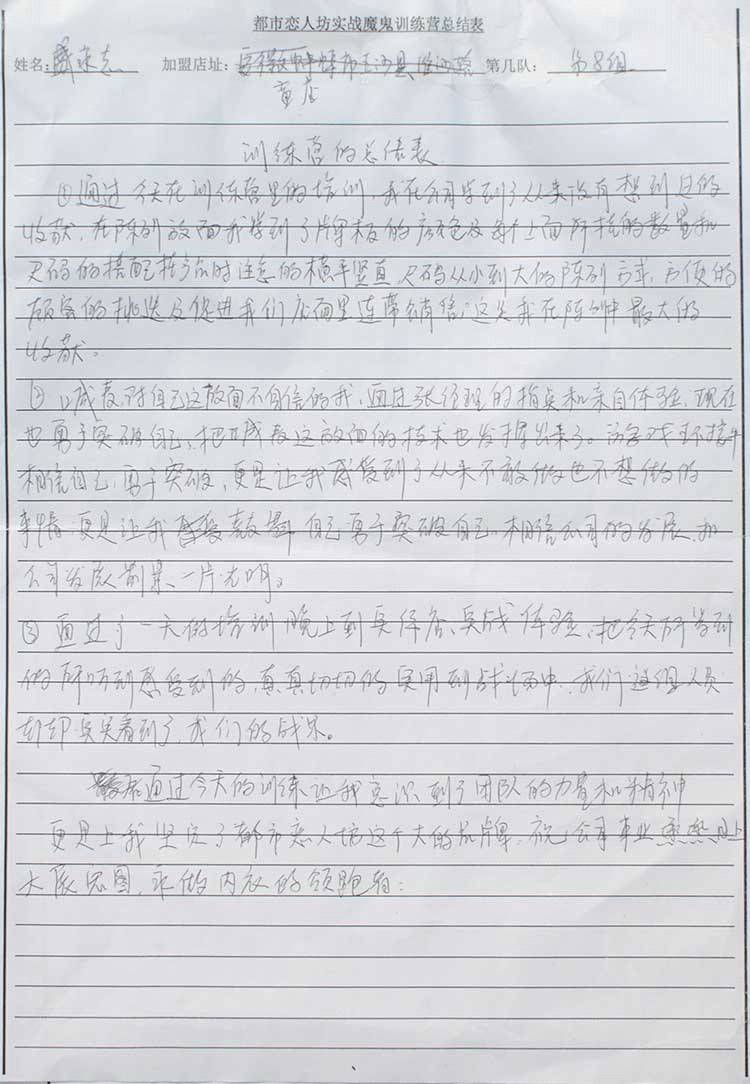 都市恋人坊实战魔鬼训练营总结表
姓名: 加盟店址: 第几队: 第8组
黄店
训练营的总结表
①通过今天在训练营里的培训,我在公司学到了从来没有想到过的
收获,在陈列放面我学到了牌板的颜色及每个上面所挂的数量和
尺码的搭配挂产品时注意的横平竖直,尺码从小到大的陈列方式,方便的
顾客的挑选及促进我们店面里连带销售,这是我在陈列中最大的
收获。
② 对自己这放面不自信的我,通过张经理的指点和亲自体验,现在
也勇于突破自己,把 这放面的技术也发挥出来了。游戏环接中
相信自己,勇于突破,更是让我感受到了从来不敢做也不想做的
事情,更是让我鼓励自己勇于突破自己。相信公司的发展,和
公司发展前景,一片光明。
③通过了一天的培训晚上到实体店、实战体验,把今天所学到
的所听到感受到的,真真切切的实用到战场中,我们这组人员
却却实实看到了,我们的战果。
通过今天的训练让我意识到了团队的力量和精神
更是上我坚定了都市恋人坊这个大的品牌,祝:公司事业蒸蒸日上
大展宏图,永做内衣的领跑者: